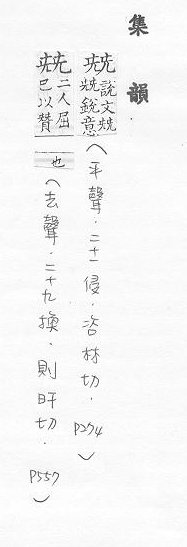 集韻.
兓說文兓兓銳意(平聲.二十一侵.咨林切.P274)
兓二人屈已以贊也(去聲.二十九換.則旰切.P557)